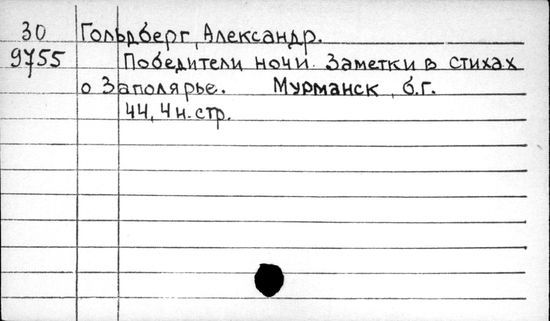 30 Гольдберг, Александр.
9755 Победители ночи. Заметки в стихах
о Заполярье. Мурманск, б.г.
44, 4 н. стр.